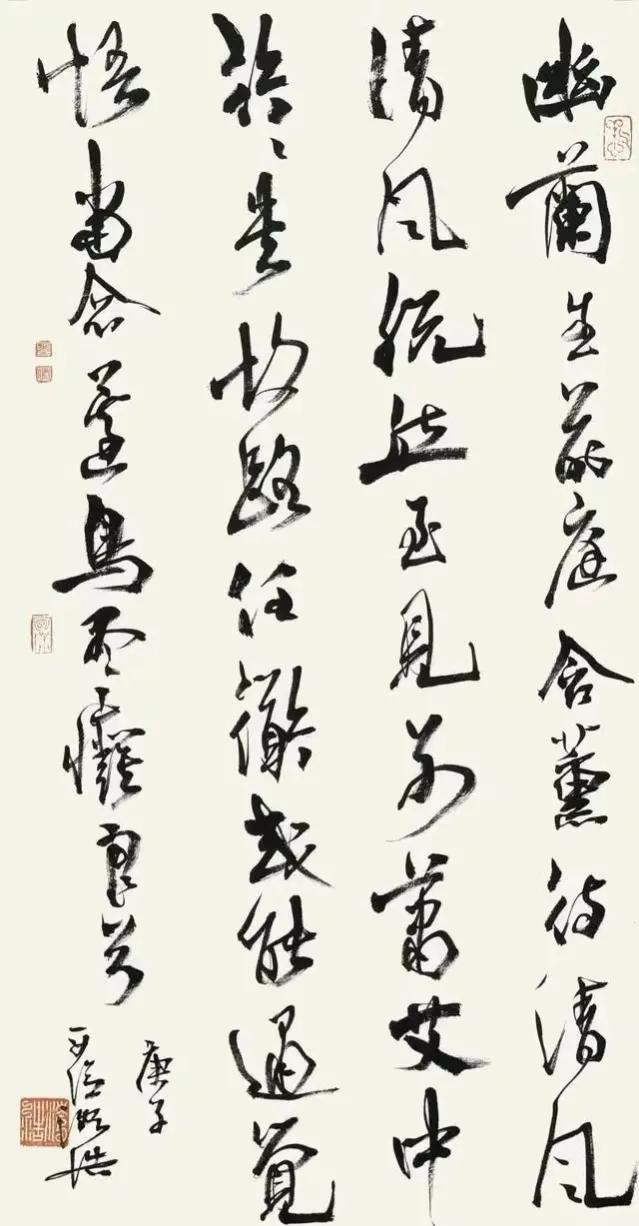 幽蘭生前庭含薰待清風
清風脫然至見別蕭艾中
行〻失故路任道或能通覺
悟當念還鳥盡廢良弓
庚子